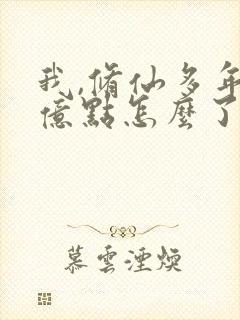 我,脩仙多年
億點怎麼了
慕雲湮煥